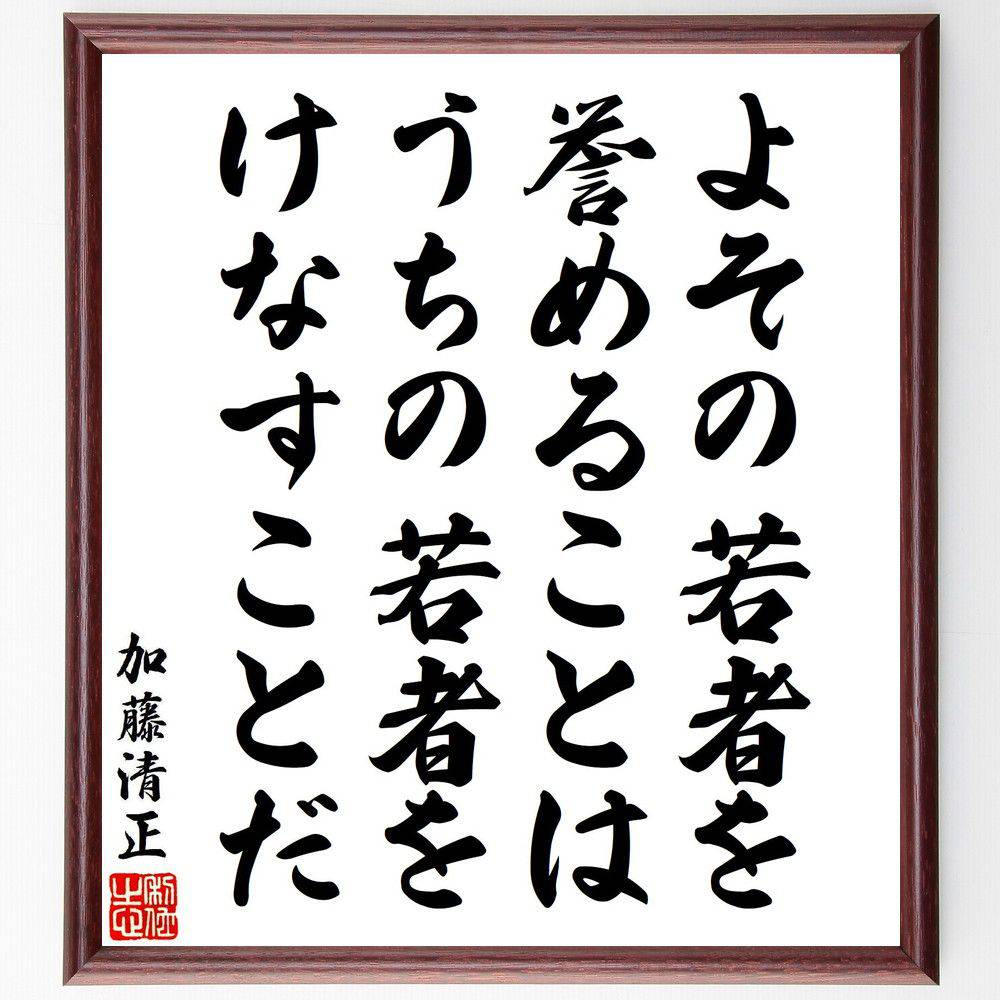 よその若者を
誉めることは
うちの若者を
けなすことだ
加藤清正